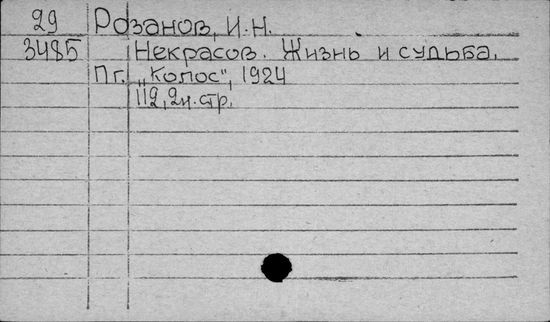 29 Розанов, И.Н.
3485 Некрасов. Жизнь и судьба.
Пг. „Колос", 1924
112, 2н. стр.